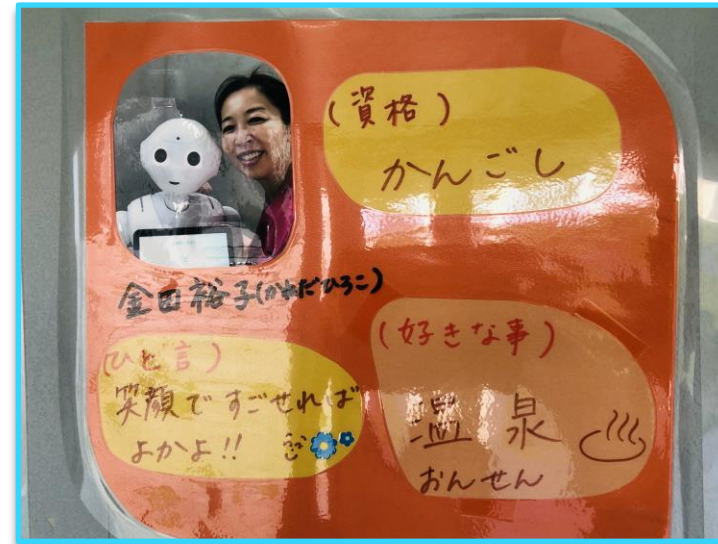 (資格)
かんごし
金田裕子(かねだひろこ)
(ひと言)
笑顔ですごせれば
よかよ!!
(好きな事)
温泉
おんせん